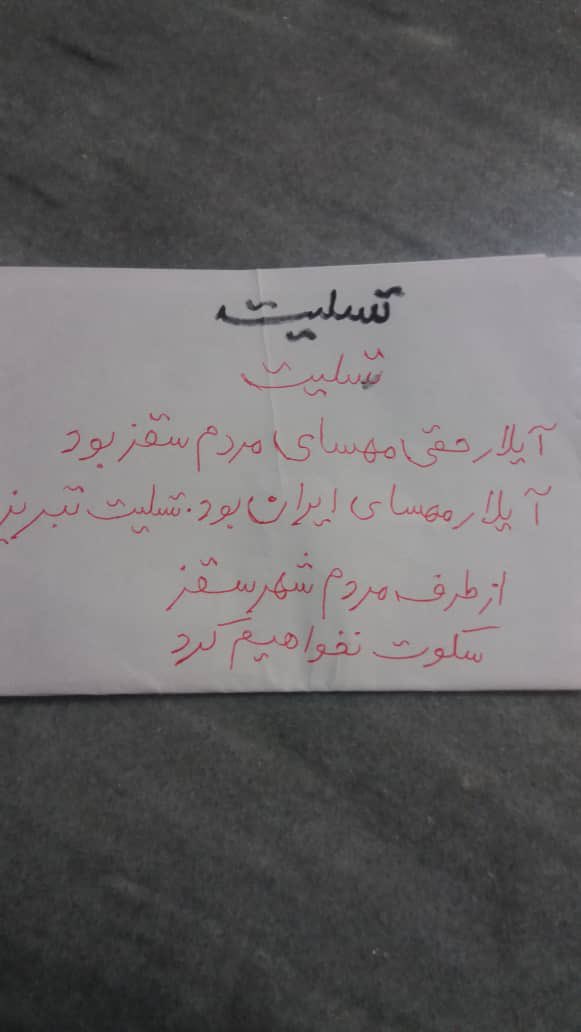 تسلیت
تسلیت
آیلار حقی مهسای مردم سقز بود
آیلار مهسای ایران بود. تسلیت تبریز
از طرف مردم شهر سقز
سکوت نخواهیم کرد